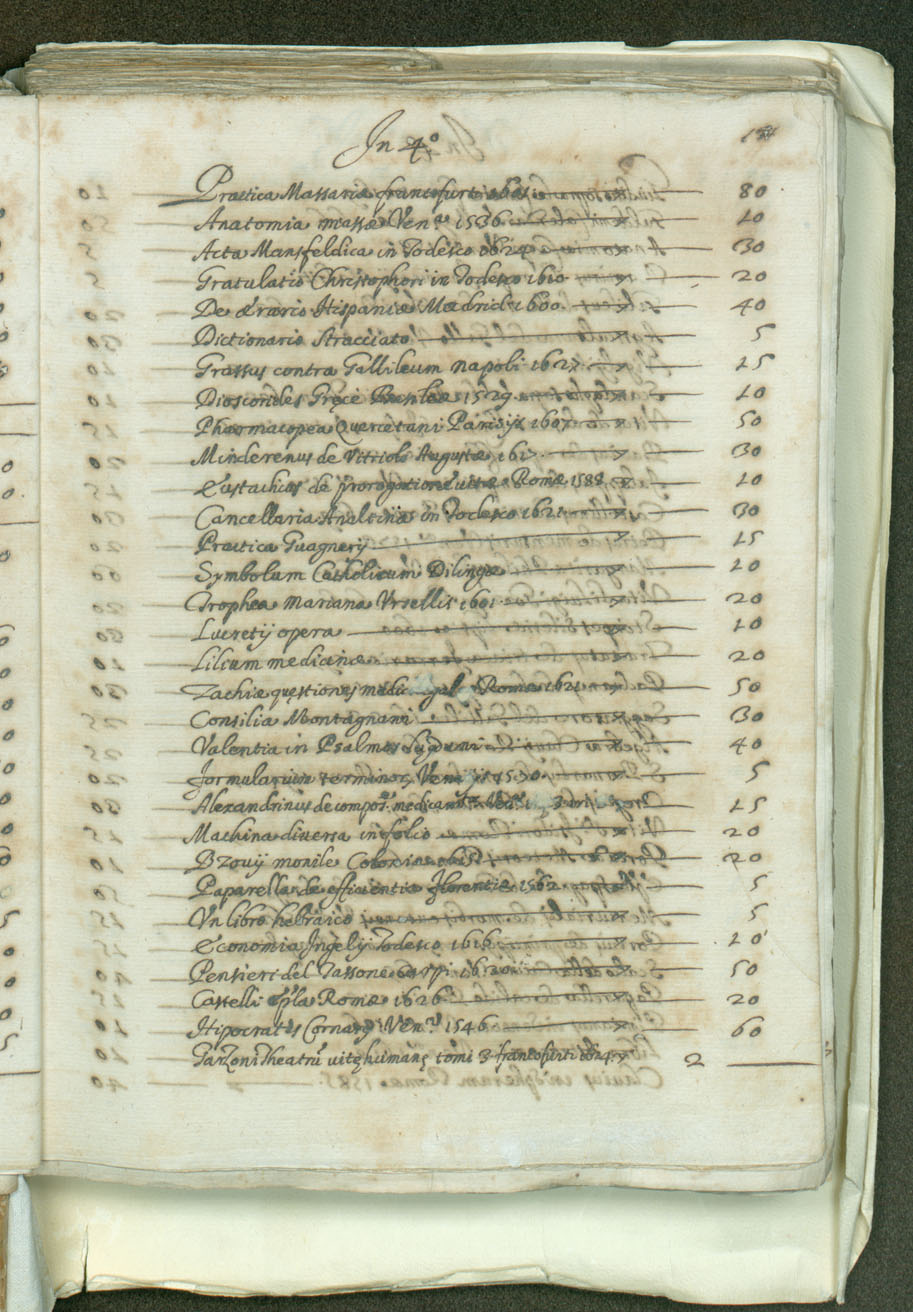 In 4.º
Practica Massariæ francofurti 1601 80
Anatomia massæ Ven.ª 1536 10
Acta Mansfeldica in Todesco 1624 30
Gratulatio Christophori in Todesco 1610 20
De ærario Hispaniæ Madrid 1600 40
Dictionario Stracciato 5
Grassus contra Gallileum Napoli 1627 15
Dioscorides Gręce 1529 10
Pharmacopea Quercetani Parisijs 1607 50
Minderenus de Vitriolo Augustæ 1617 30
Eustachius de prorogatione vitæ Romæ 1589 10
Cancellaria Analtina in Todesco 1621 30
Practica Guagnerij 15
Symbolum Catholicum Dilingæ 10
Trophea Mariana Vrsellis 1601 20
Lucretij opera 10
Lilium medicinæ 20
Zachiæ quęstiones medic legal Romæ 1621 50
Consilia Montagnani 30
Valentia in Psalmos Lugduni 40
formularium terminor Venijs 1530 5
Alexandrinus de compos. medicam. Ven. 15
Machina diversa in folio 20
Bzovij monile Coloniæ 20
Paparella de efficientia florentiæ 1562 5
Vn libro hebraico 5
Economia Ingelij Todesco 1616 10
Pensieri del Tassone Carpi 1620 50
Castelli epla Romæ 1626 20
Hipocratis Cornarij Ven.ª 1546 60
Garzoni Theatrũ vitę humanę tomi 3 francofurti 1624 2